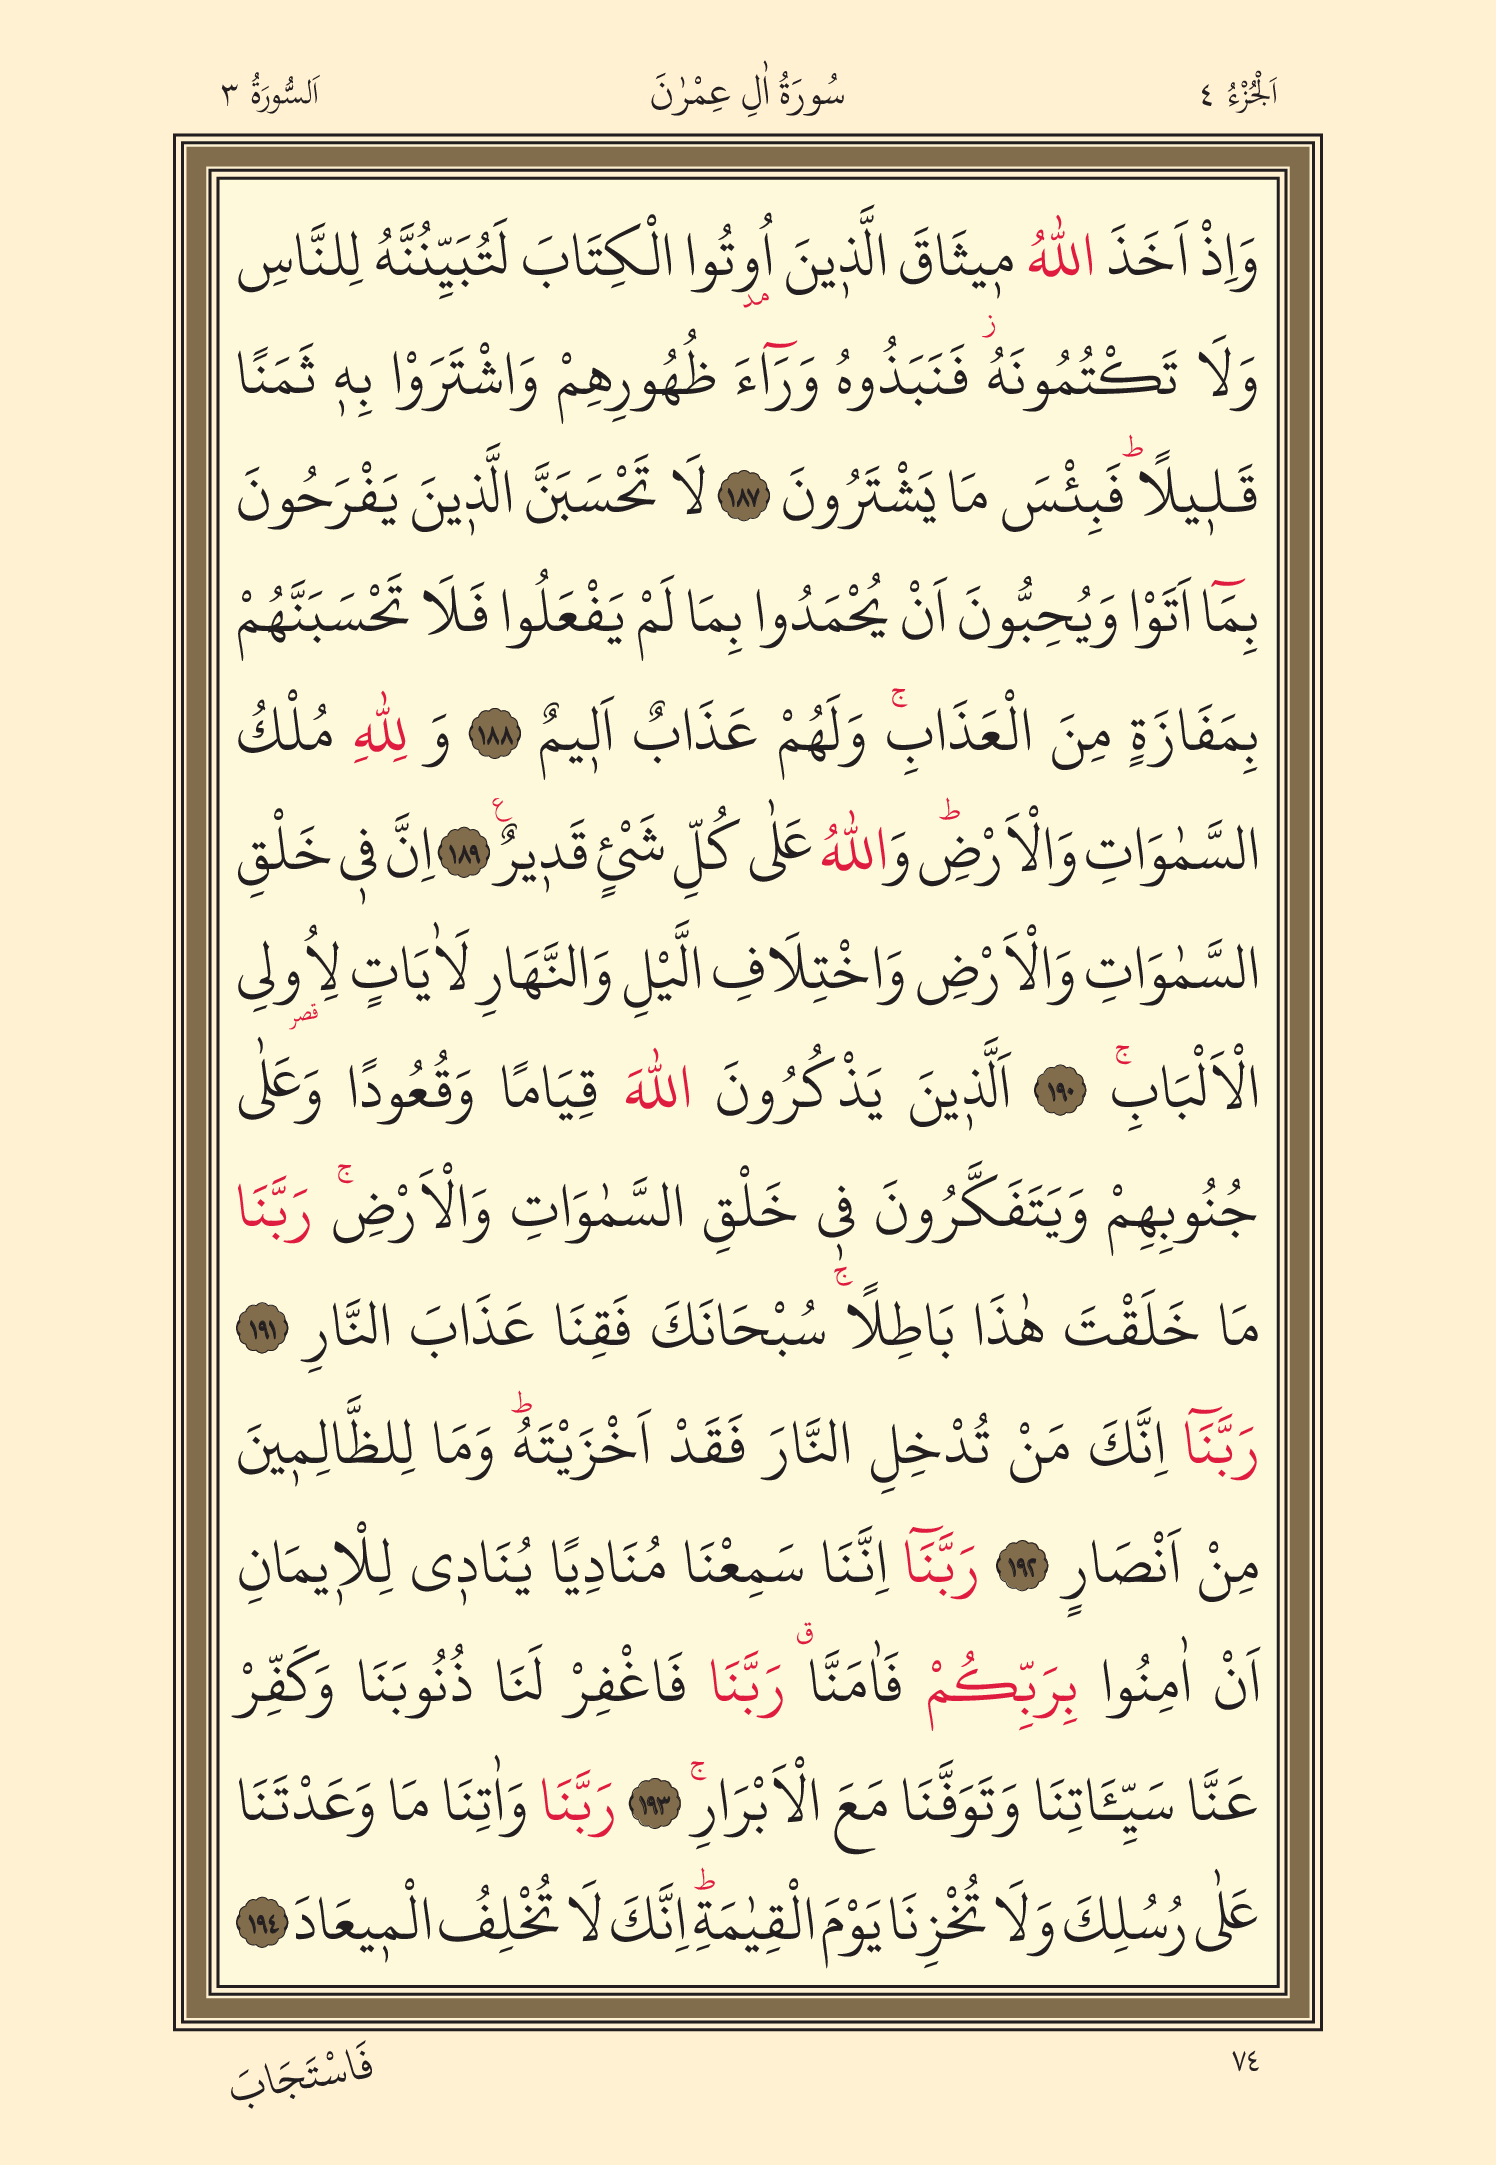 اَلْجُزْءُ ٤
سُورَةُ اٰلِ عِمْرٰنَ
اَلسُّورَةُ ٣
وَاِذْ اَخَذَ اللّٰهُ مٖيثَاقَ الَّذٖينَ اُوتُوا الْكِتَابَ لَتُبَيِّنُنَّهُ لِلنَّاسِ
مد
وَلَا تَكْتُمُونَهُ ز فَنَبَذُوهُ وَرَٓاءَ ظُهُورِهِمْ وَاشْتَرَوْا بِهٖ ثَمَنًا
قَلٖيلًا ط فَبِئْسَ مَا يَشْتَرُونَ ١٨٧ لَا تَحْسَبَنَّ الَّذٖينَ يَفْرَحُونَ
بِمَٓا اَتَوْا وَيُحِبُّونَ اَنْ يُحْمَدُوا بِمَا لَمْ يَفْعَلُوا فَلَا تَحْسَبَنَّهُمْ
بِمَفَازَةٍ مِنَ الْعَذَابِ ج وَلَهُمْ عَذَابٌ اَلٖيمٌ ١٨٨ وَ لِلّٰهِ مُلْكُ
السَّمٰوَاتِ وَالْاَرْضِ ط وَاللّٰهُ عَلٰى كُلِّ شَیْئٍ قَدٖيرٌ ع ١٨٩ اِنَّ فٖى خَلْقِ
السَّمٰوَاتِ وَالْاَرْضِ وَاخْتِلَافِ الَّيْلِ وَالنَّهَارِ لَاٰيَاتٍ لِاُولِى
قصر
الْاَلْبَابِ ج ١٩٠ اَلَّذٖينَ يَذْكُرُونَ اللّٰهَ قِيَامًا وَقُعُودًا وَعَلٰى
جُنُوبِهِمْ وَيَتَفَكَّرُونَ فٖى خَلْقِ السَّمٰوَاتِ وَالْاَرْضِ ج رَبَّنَا
مَا خَلَقْتَ هٰذَا بَاطِلًا ج سُبْحَانَكَ فَقِنَا عَذَابَ النَّارِ ١٩١
رَبَّنَٓا اِنَّكَ مَنْ تُدْخِلِ النَّارَ فَقَدْ اَخْزَيْتَهُ ط وَمَا لِلظَّالِمٖينَ
مِنْ اَنْصَارٍ ١٩٢ رَبَّنَٓا اِنَّنَا سَمِعْنَا مُنَادِيًا يُنَادٖى لِلْاٖيمَانِ
اَنْ اٰمِنُوا بِرَبِّكُمْ فَاٰمَنَّا ق رَبَّنَا فَاغْفِرْ لَنَا ذُنُوبَنَا وَكَفِّرْ
عَنَّا سَيِّـَٔاتِنَا وَتَوَفَّنَا مَعَ الْاَبْرَارِ ج ١٩٣ رَبَّنَا وَاٰتِنَا مَا وَعَدْتَنَا
عَلٰى رُسُلِكَ وَلَا تُخْزِنَا يَوْمَ الْقِيٰمَةِ ط اِنَّكَ لَا تُخْلِفُ الْمٖيعَادَ ١٩٤
٧٤
فَاسْتَجَابَ